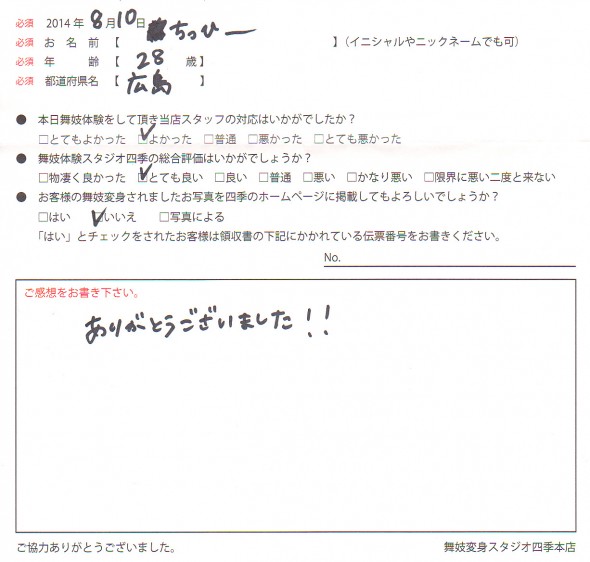 必須 2014年 8月10日
必須 お名前【 ちっひー 】（イニシャルやニックネームでも可）
必須 年齢【 28 歳】
必須 都道府県名【 広島 】
● 本日舞妓体験をして頂き当店スタッフの対応はいかがでしたか？
□とてもよかった ☑よかった □普通 □悪かった □とても悪かった
● 舞妓体験スタジオ四季の総合評価はいかがでしょうか？
□物凄く良かった ☑とても良い □良い □普通 □悪い □かなり悪い □限界に悪い二度と来ない
● お客様の舞妓変身されましたお写真を四季のホームページに掲載してもよろしいでしょうか？
□はい ☑いいえ □写真による
「はい」とチェックをされたお客様は領収書の下記にかかれている伝票番号をお書きください。
No.
ご感想をお書き下さい。
ありがとうございました！！
ご協力ありがとうございました。
舞妓変身スタジオ四季本店